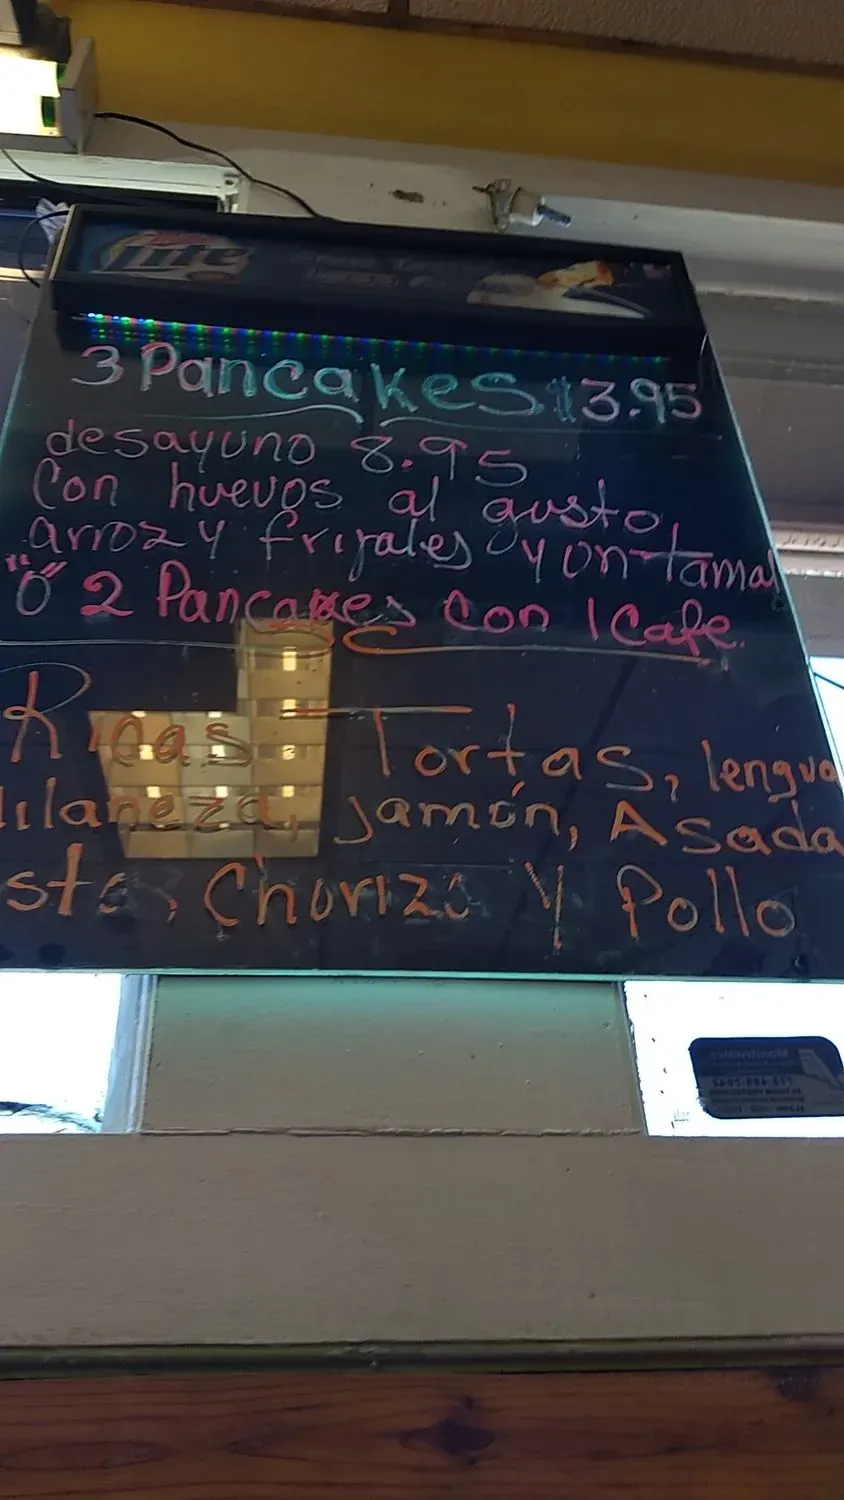 Lite
3 Pancakes $3.95
desayuno 8.95
Con huevos al gusto
arroz y frijales y un tamal
"o" 2 Pancakes con 1 Cafe.
Ricas Tortas, lengua
Milaneza, jamón, Asada
Chorizo Y Pollo